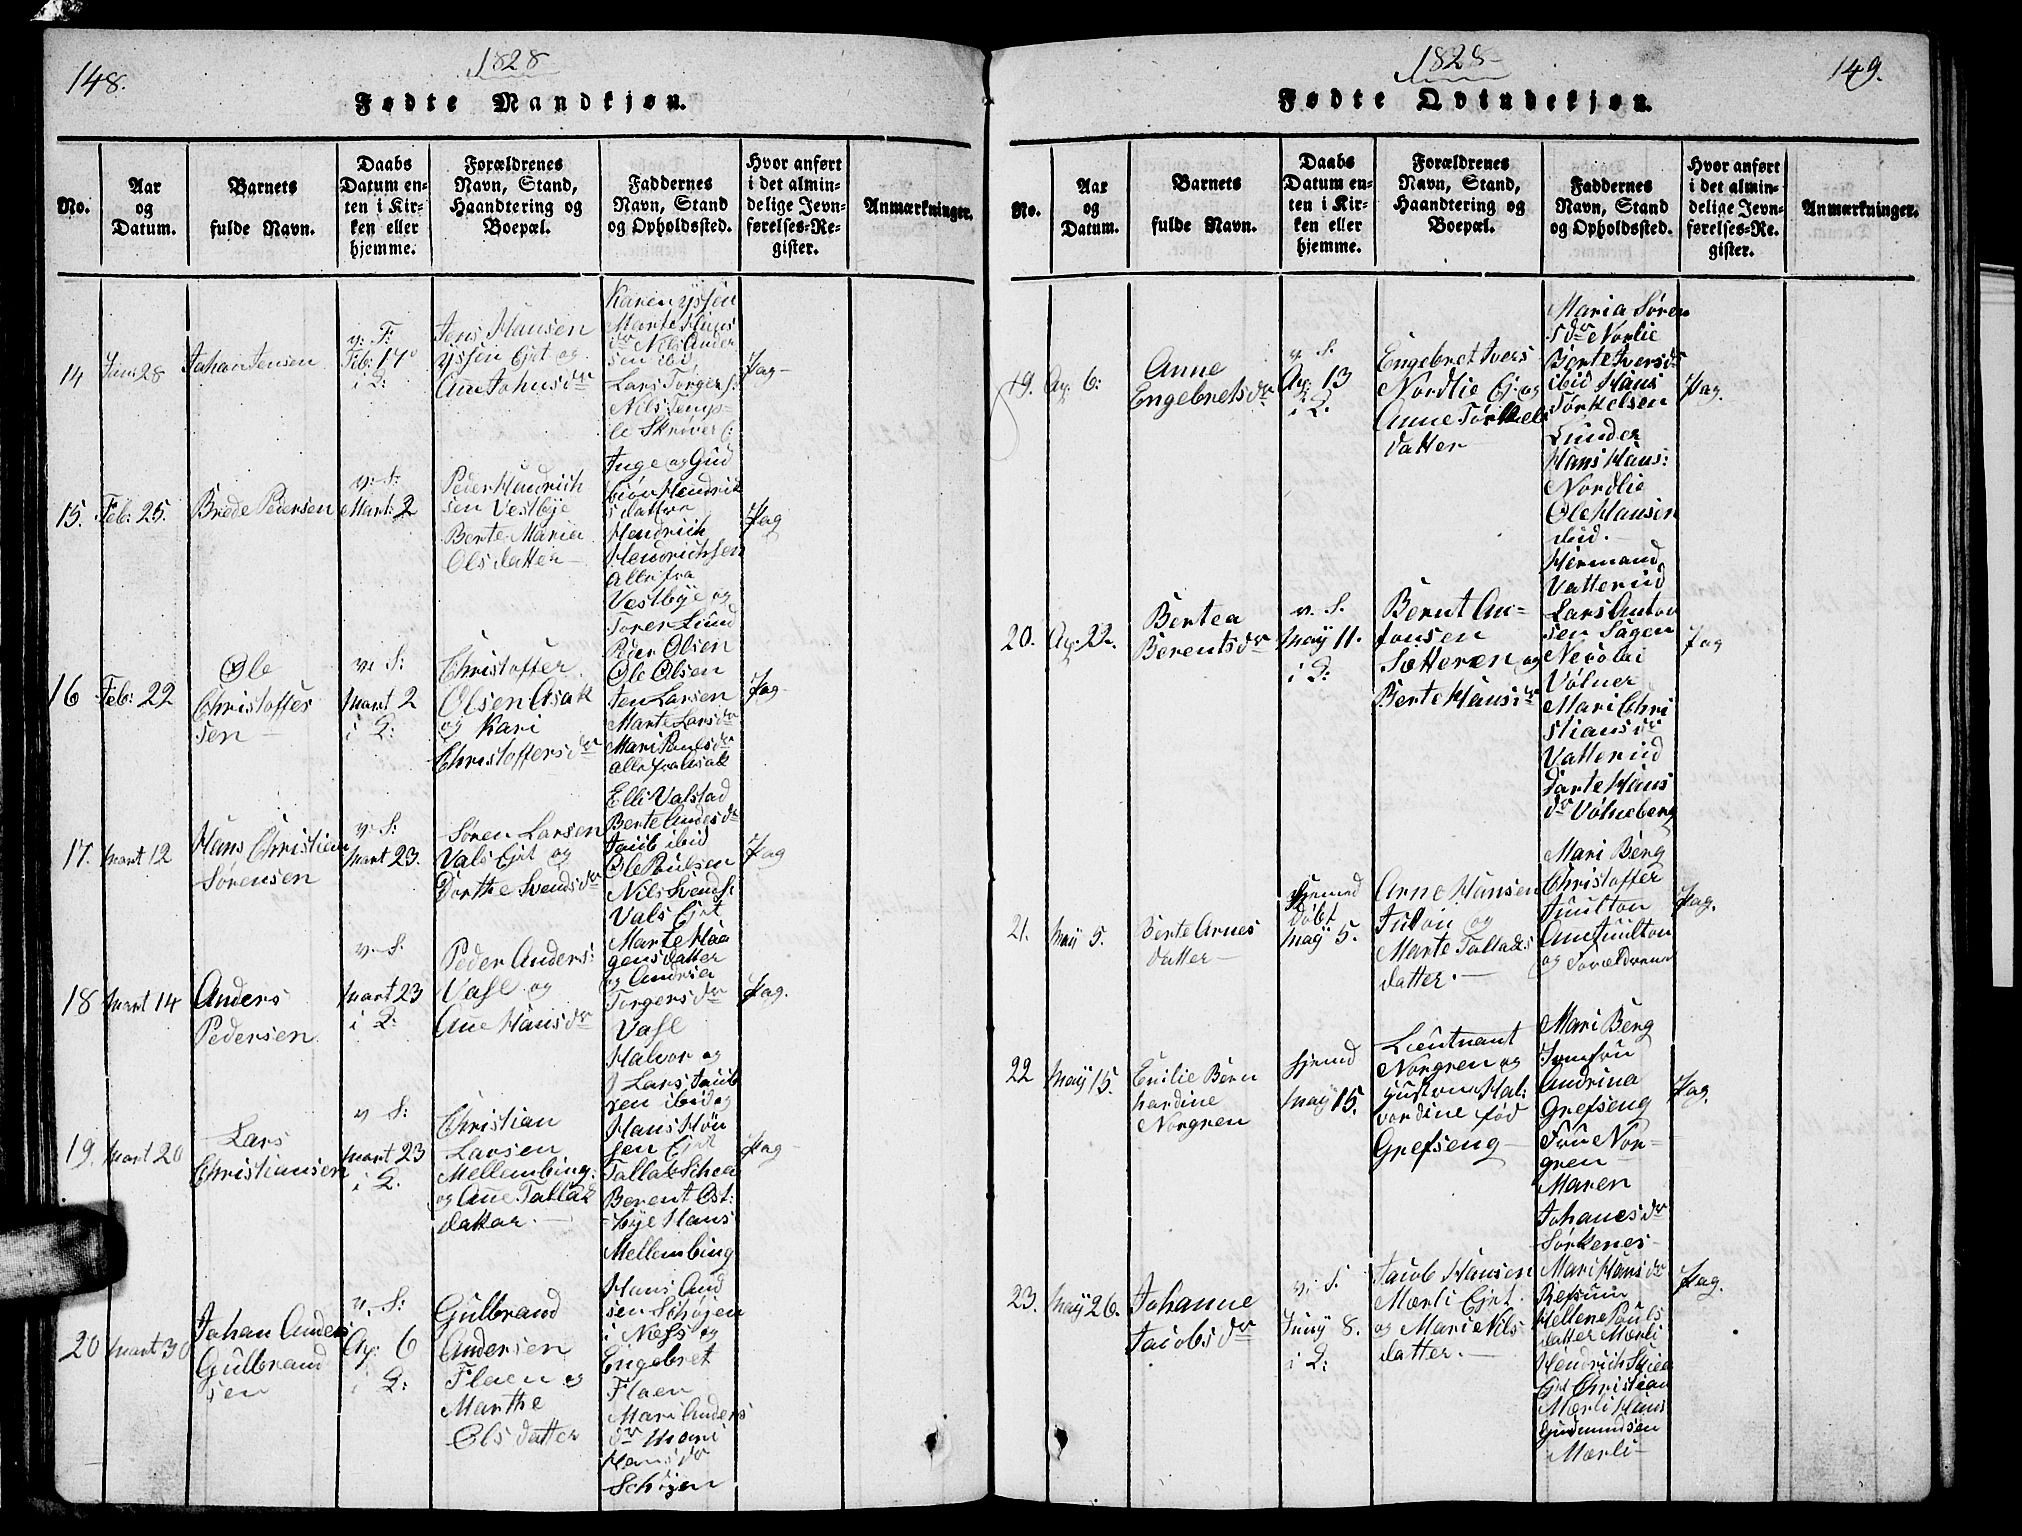 148.
1828
Fødte Mandkjøn.
No.
Aar
og
Datum.
Barnets
fulde Navn.
Daabs
Datum en-
ten i Kir-
ken eller
hjemme.
Forældrenes
Navn, Stand,
Haandtering og
Boepæl.
Faddernes
Navn, Stand
og Opholdssted.
Hvor anført
i det almin-
delige Jevn-
førelses-Re-
gister.
Anmærkninger.
14
Jan: 28
Johan Jensen
v: F:
Feb: 17
i L:
Jens Hansen
yssen Ejet og
Ane Johnsdr
Karen yssen
Marte Hans
dr Nils Ander
sen ibid
Lars Torgers:
Nils Tengs-
le Skrøver
Pag
15.
Feb: 25.
Brede Pedersen
v: S.
Mart: 2
Peder Hendrich
sen Vestbye
Berte Maria
Olsdatter
Inge og Gud
biør Hendrik
sdattre
Hendrich
Hendrichsen
alle fra
Vestbye og
Sører Lund
Pag
16
Feb: 22
Ole
Christoffer
sen
v: S:
Mart 2
i L:
Christoffer
Olsen Asak
og Kari
Christoffersdr
Peder Olsen
Ole Olsen
Jen Larsen
Marte Larsdr
Mari Paulsdr
alle fra Asak
Pag
17.
Mart 12
Hans Christian
Sørensen
v: S:
Mart 23.
Søren Larsen
Vals Ejet og
Dorthe Svendsdr
Elli Valstad
Berte Andersdr
Taub ibid
Ole Paulsen
Nils Svends:
Vals Ejet
Pag
18
Mart 14
Anders
Pedersen
v: S:
Mart 23
i L:
Peder Anders:
Vasl og
Ane Hansdr
Marte Haa
gensdatter
og Andria
Torgersdr
Vasl
Halvor og
Pag.
19.
Mart 20
Lars
Christiansen
v: S:
Mart 23
i L.
Christian
Larsen
Mellembing:
og Ane Tallak
datter.
Lars Taub
ren ibid og
Hans Høn
sen Ejet
Tallak Schea
Berent Ost:
bye Hans
Mellembing
Pag
20
Mart 30
Johan Anders
Gulbrand
sen
v. S:
Ap: 6
i L:
Gulbrand
Andersen
Flaen og
Marthe
Olsdatter
Hans And
sen Schøjen
i Næss og
Engebret
Flaen
Mari Anders
dr Mari
Hansdr
Schøjen
1828
149.
Fødte Qvindekjøn.
No.
Aar
og
Datum.
Barnets
fulde Navn.
Daabs
Datum en-
ten i Kir-
ken eller
hjemme.
Forældrenes
Navn, Stand,
Haandtering og
Boepæl.
Faddernes
Navn, Stand
og Opholdssted.
Hvor anført
i det almin-
delige Jevn-
førelses-Re-
gister.
Anmærkninger.
19.
Ap: 6:
Anne
Engebretsdr
v. S.
Ap: 13
i L.
Engebret Ivers
Nordlie Ej. og
Anne Torkels
datter
Maria Søren
sdr Norlie
Berte Iversdr
ibid Hans
Torkelsen
Lunder
Hans Hans:
Nordlie
Ole Hansen
ibid.
Pag.
20.
Ap: 22.
Bertea
Berentsdr
v. S.
May 11.
i L:
Bernt An-
tonsen
Sætteren og
Berte Hansdr
Hermand
Vatterud
Lars Anton
sen Sagen
Nicolai
Volner
Mari Chri
stiansdr
Vatterud
Dorte Hans
dr Volneberg
Pag
21.
May 5.
Berte Arnes
datter
hjemed
døbt
May 5.
Arne Hansen
Julton og
Marte Tallaks
datter.
Mari Berg
Christoffer
Juulton
Ane Juulton
og Forældrene
Pag.
22
May 15.
Emilie Bern
hardine
Norgren
hjemed
May 15.
Lieutnant
Norgren og
Gustava Hal:
vordine fød
Grefseng
Mari Berg
Jomfru
Andrina
Grefseng
Frue Nor-
gren
Maren
Johanesdr
Sørkenes
Pag.
23.
May 26.
Johanne
Jacobsdr
v: S
Juny 8.
i L:
Jacob Hansen
Mærli Ejet.
og Mari Nils
datter.
Mari Hansdr
Refsum
Hellene Pouls
datter Mærli
Hendrich Skiea
Ejet Christian
Mærli Hans
Gudmundsen
Mærli
Pag.